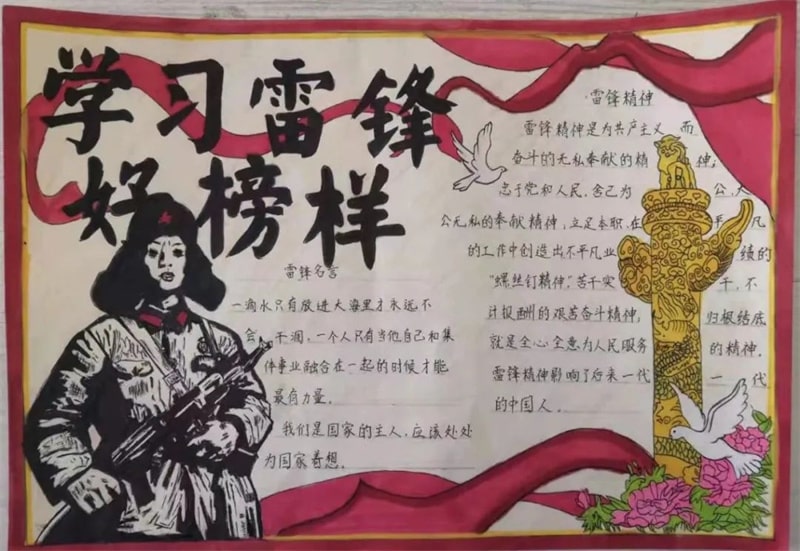 学习雷锋
好榜样
雷锋名言
一滴水只有放进大海里才永远不
会干涸，一个人只有当他自己和集
体事业融合在一起的时候才能
最有力量。
我们是国家的主人，应该处处
为国家着想。
雷锋精神
雷锋精神是为共产主义而
奋斗的无私奉献的精神；
忠于党和人民、舍己为公，大
公无私的奉献精神，立足本职、在平凡
的工作中创造出不平凡业绩的
“螺丝钉精神”，苦干实干，不
计报酬的艰苦奋斗精神，归根结底
就是全心全意为人民服务的精神。
雷锋精神影响了后来一代一代
的中国人。